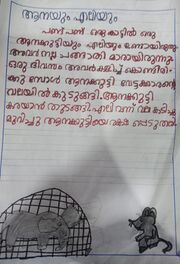 ആനയും എലിയും
പണ്ട് പണ്ട് ഒരു കാട്ടിൽ ഒരു
ആനക്കുട്ടിയും എലിയും ഉണ്ടായിരുന്നു
അവർ നല്ല ചങ്ങാതി മാരായിരുന്നു
ഒരു ദിവസം അവർ കളിച്ച് കൊണ്ടിരി
ക്കു മ്പോൾ ആനക്കുട്ടി വേട്ടക്കാരന്റെ
വലയിൽ കുടുങ്ങി. ആനക്കുട്ടി
കരയാൻ തുടങ്ങി എലി വന്ന് വല കടിച്ചു
മുറിച്ചു ആനക്കുട്ടിയെ രക്ഷ പ്പെടുത്തി